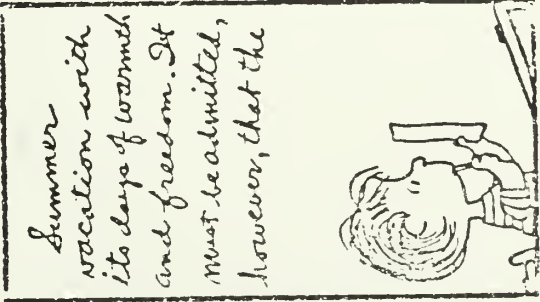 Summer
vacation with
its days of warmth
and freedom. It
must be admitted,
however, that the